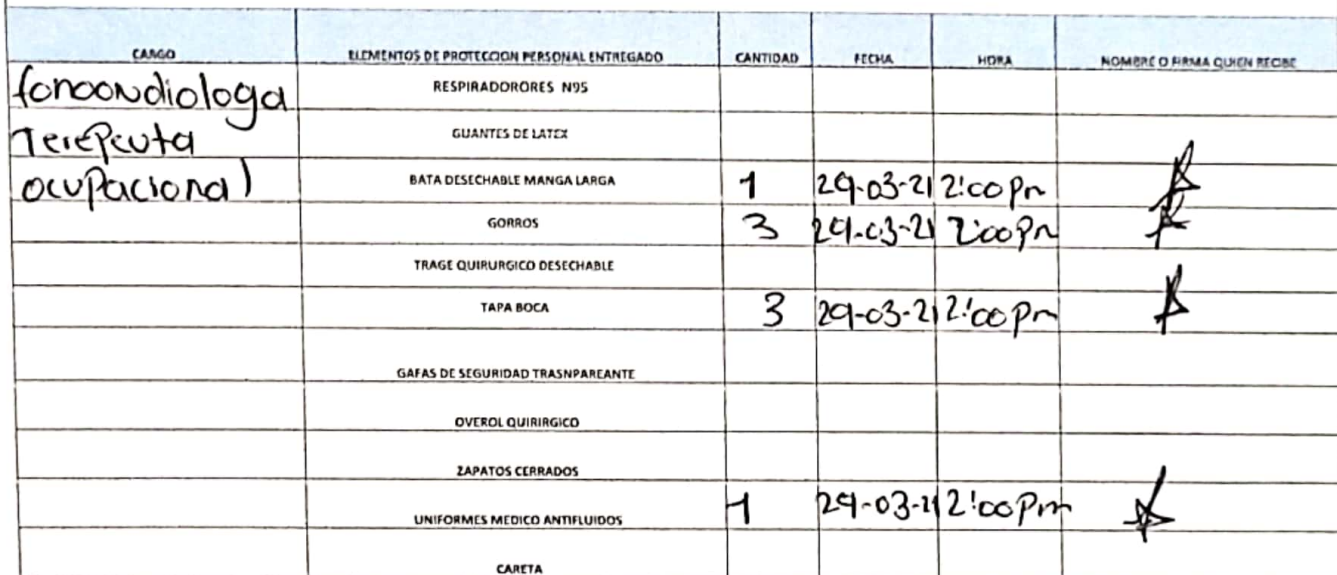 CARGO ELEMENTOS DE PROTECCION PERSONAL ENTREGADO CANTIDAD FECHA HORA NOMBRE O FIRMA QUIEN RECIBE
fonoondiologa RESPIRADORORES N95
Terepeuta GUANTES DE LATEX
ocupacional BATA DESECHABLE MANGA LARGA 1 29-03-21 2:00 pm
GORROS 3 29-03-21 2:00 pm
TRAGE QUIRURGICO DESECHABLE
TAPA BOCA 3 29-03-21 2:00 pm
GAFAS DE SEGURIDAD TRASNPAREANTE
OVEROL QUIRIRGICO
ZAPATOS CERRADOS
UNIFORMES MEDICO ANTIFLUIDOS 1 29-03-21 2:00 pm
CARETA